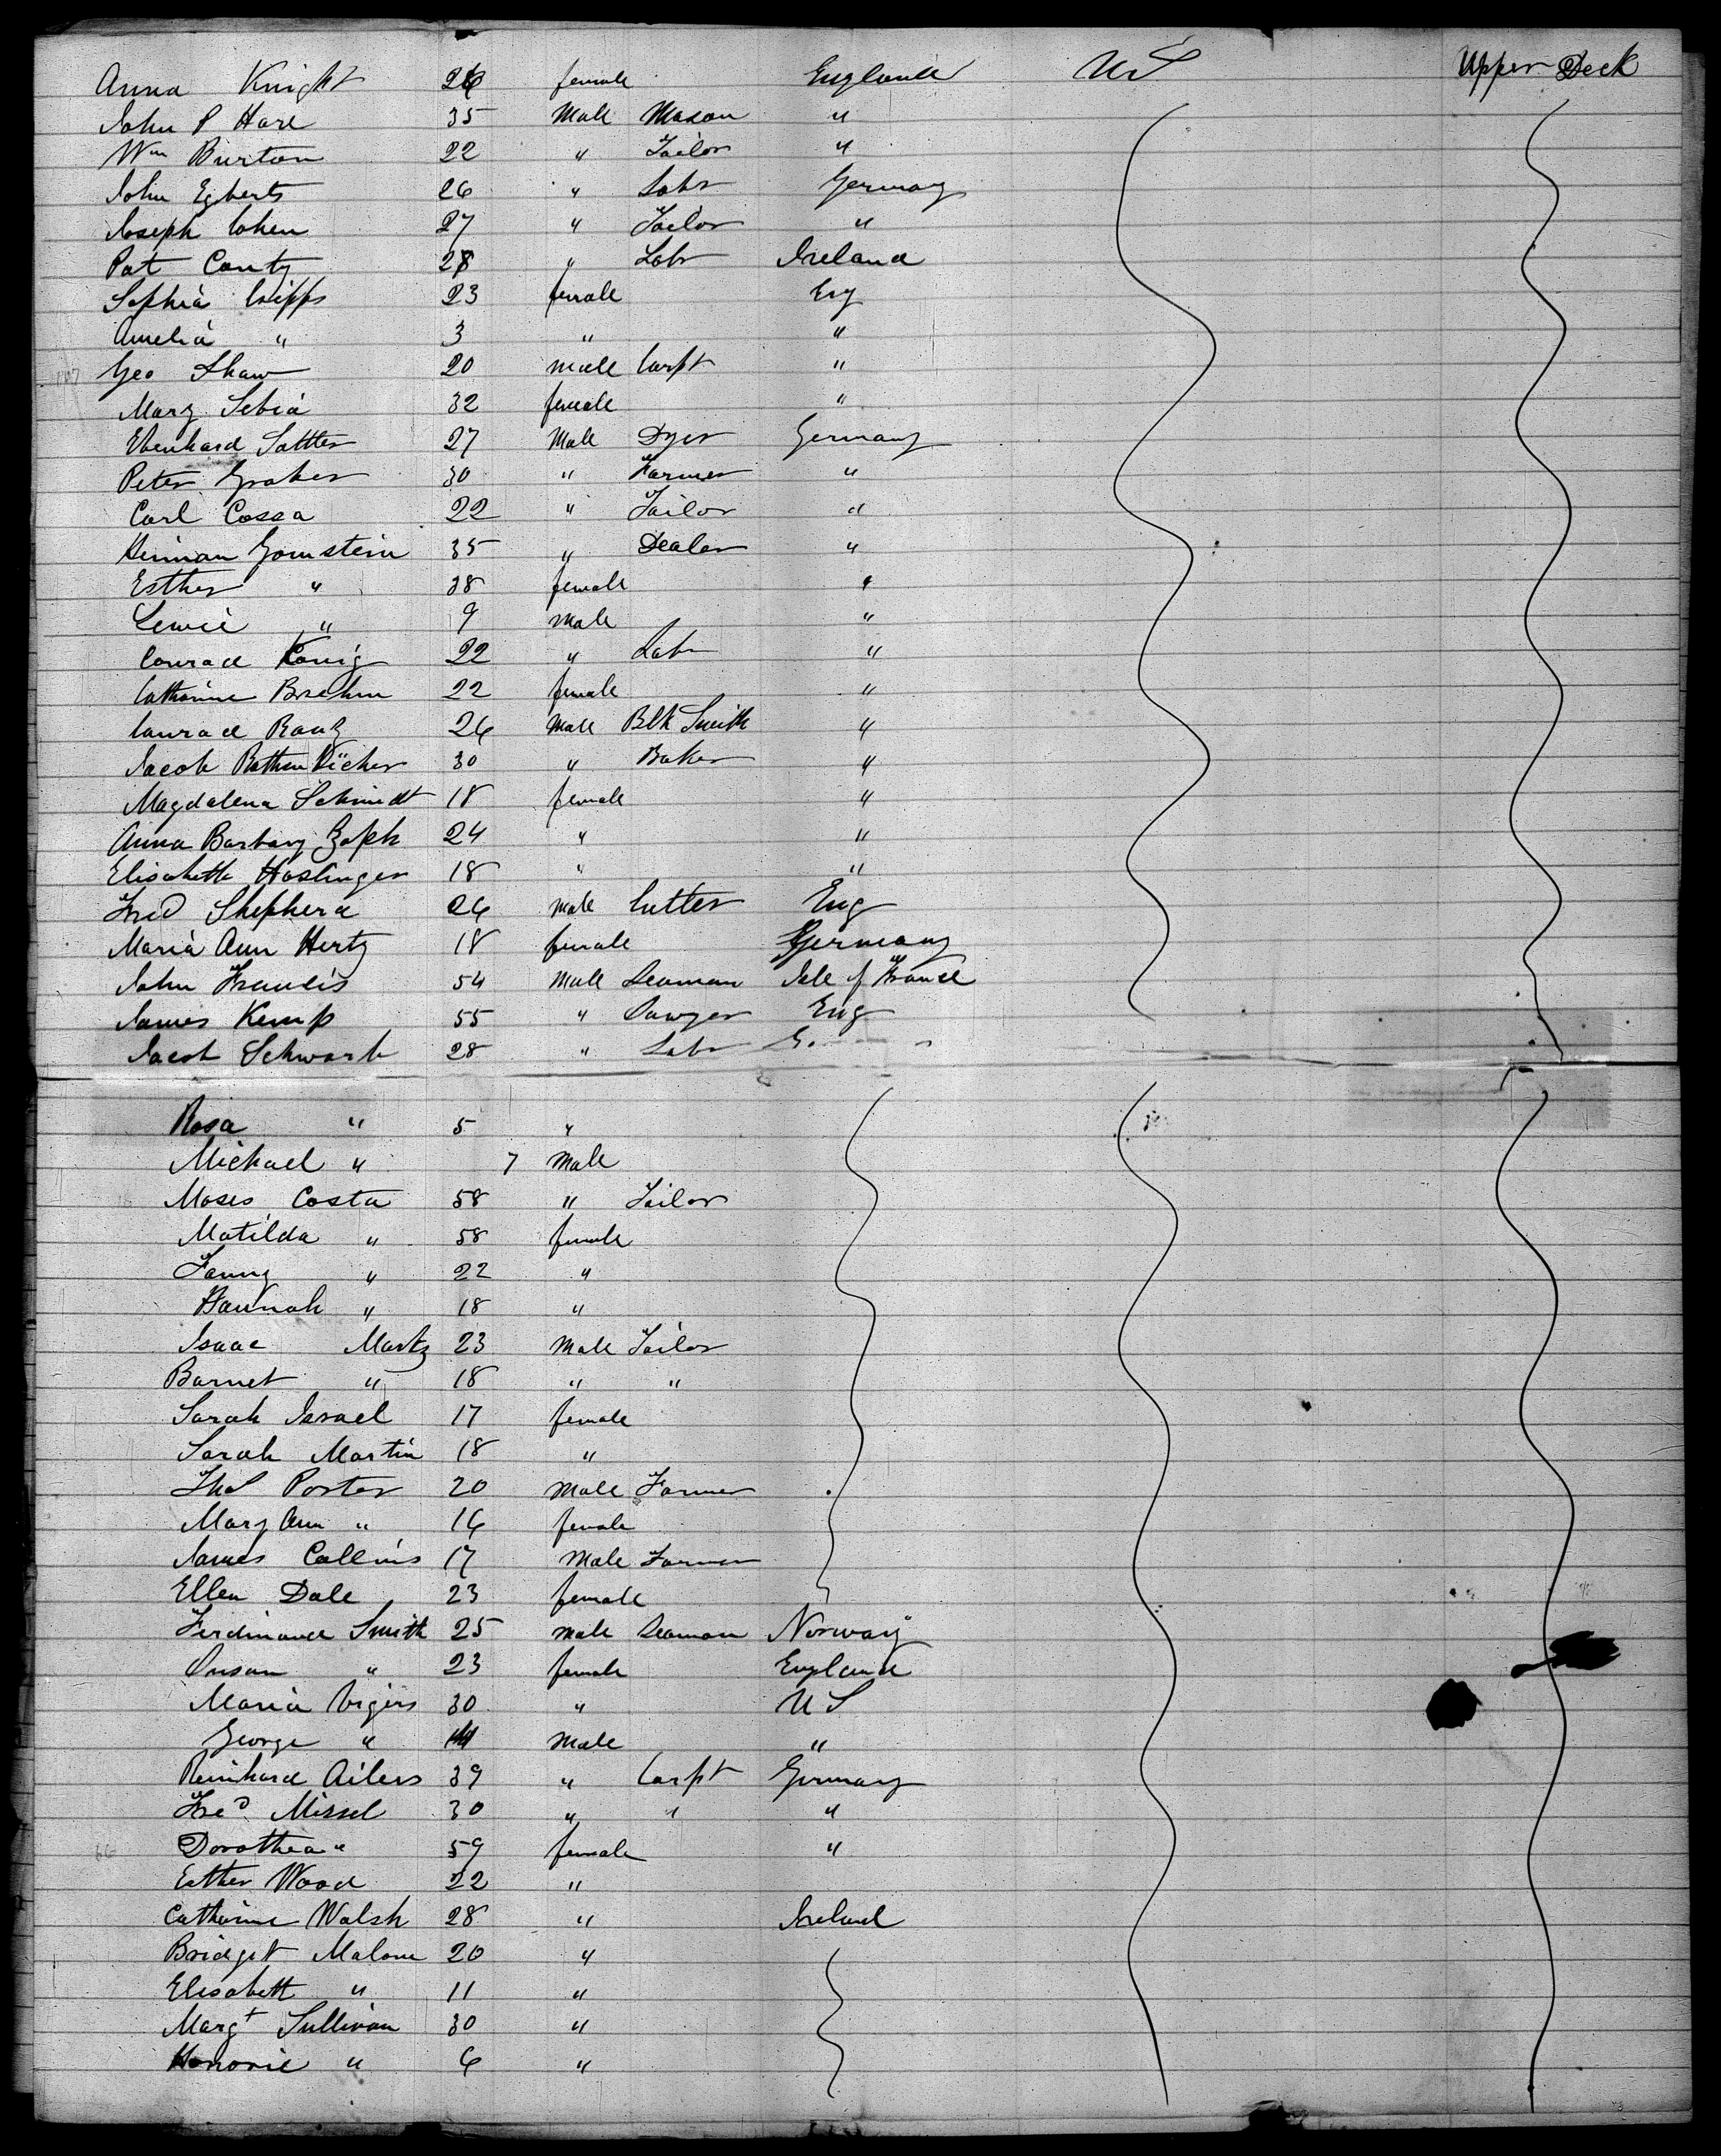 Anna Knight 26 female England US Upper Deck
John P Hare 35 Male Mason "
Wm Burton 22 " Tailor "
John Egberts 26 " Labr Germany
Joseph Cohen 27 " Tailor "
Pat Canty 28 " Labr Ireland
Sophia Cripps 23 female Eng
Amelia " 3 " "
Geo Shaw 20 male Carpt "
Mary Sebia 32 female "
Ebenhard Sattler 27 Male Dyer Germany
Peter Graber 30 " Farmer "
Carl Cossa 22 " Tailor "
Herman Gornstein 35 " Dealer "
Esther " 38 female "
Lewie " 9 male "
Conrad König 22 " Labr "
Catharine Brehm 22 female "
Conrad Rauz 26 male Blk Smith "
Jacob " 30 " Baker "
Magdalena Schmidt 18 female "
Anna Barbary Zapk 24 " "
Elisabeth Haslinger 18 " "
Fred Shepherd 26 male Cutter Eng
Maria Ann Hertz 18 female Germany
John Francis 54 Male Seaman Isle of France
James Kemp 55 " Sawyer Eng
Jacob Schwarb 28 " Labr
Rosa " 5 "
Michael " 7 Male
Moses Costa 58 " Tailor
Matilda " 58 female
Fanny " 22 "
Hannah " 18 "
Isaac Martz 23 Male Tailor
Barnet " 18 " "
Sarah Israel 17 female
Sarah Martin 18 "
Thos Porter 20 Male Farmer
Mary Ann " 16 female
James Collins 17 Male Farmer
Ellen Dale 23 female
Ferdinand Smith 25 male Seaman Norway
Susan " 23 female England
Maria Vigirs 30 " US
George " Male "
Reinhard Ailers 39 " Carpt Germany
Fred Missel 30 " " "
Dorothea " 59 female "
Esther Wood 22 "
Catharine Walsh 28 " Ireland
Bridget Malone 20 "
Elisabeth " 11 "
Margt Sullivan 30 "
Honorie " 6 "